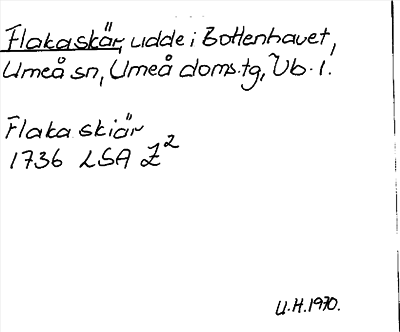 Flakaskär, udde i Bottenhavet,
Umeå sn, Umeå doms.tg, Vb. l.
Flaka skiär
1736 LSA Z²
U.H. 1970.